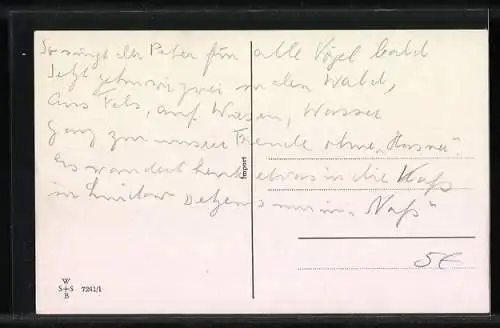 So singt der Peter für alle Vögel bald
Jetzt gehn wir zwei in den Wald,
Aus Fels, auf Wiesen, Wasser
Ganz zu unser Freude ohne „Hasner".
Es wandert heut etwas in die Kaß
in Lindow setzens nur in „Naß"
Import
5€
W
S+S
B
7241/1